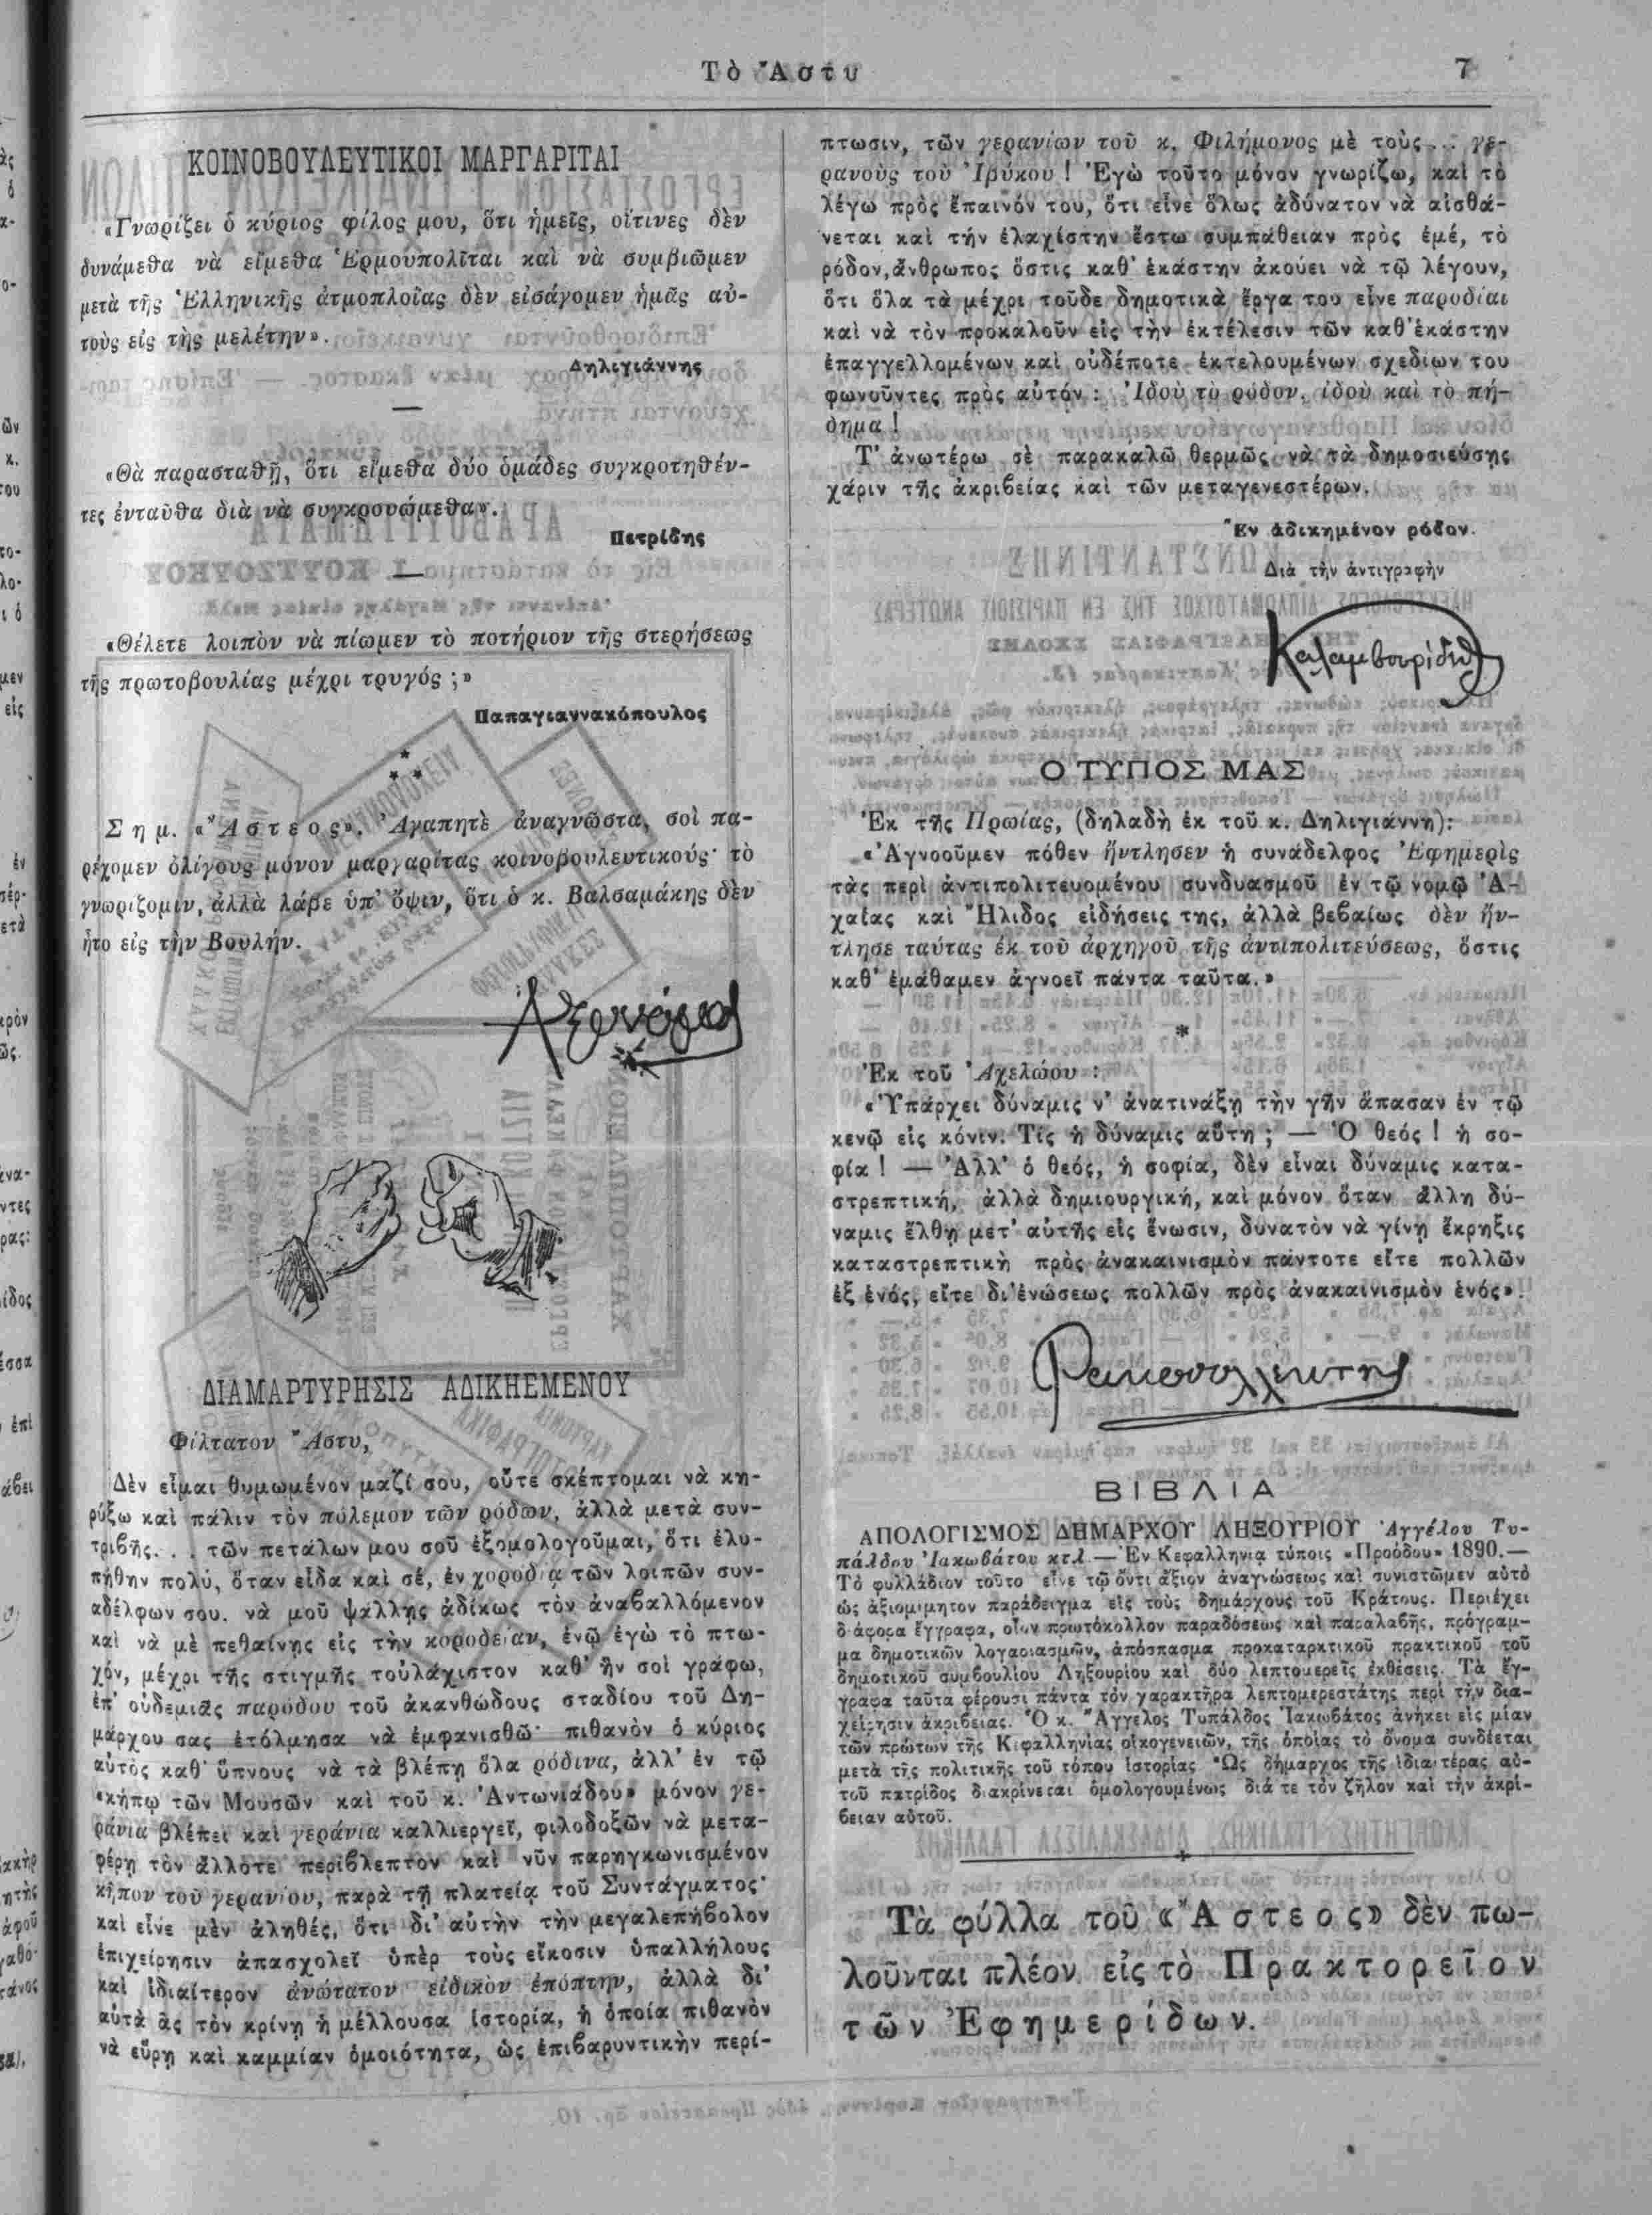 Τὸ Ἄστυ
7
ΚΟΙΝΟΒΟΥΛΕΥΤΙΚΟΙ ΜΑΡΓΑΡΙΤΑΙ
«Γνωρίζει ὁ κύριος φίλος μου, ὅτι ἡμεῖς, οἵτινες δὲν
δυνάμεθα νὰ εἴμεθα Ἑρμουπολῖται καὶ νὰ συμβιῶμεν
μετὰ τῆς Ἑλληνικῆς ἀτμοπλοΐας δὲν εἰσάγομεν ἡμᾶς αὐ-
τοὺς εἰς τὴς μελέτην».
Δηλιγιάννης
—
«Θὰ παρασταθῇ, ὅτι εἴμεθα δύο ὁμάδες συγκροτηθέν-
τες ἐνταῦθα διὰ νὰ συγκρουώμεθα».
Πετρίδης
—
«Θέλετε λοιπὸν νὰ πίωμεν τὸ ποτήριον τῆς στερήσεως
τῆς πρωτοβουλίας μέχρι τρυγός ;»
Παπαγιαννακόπουλος
***
Σημ. «Ἄστεος». Ἀγαπητὲ ἀναγνῶστα, σοὶ πα-
ρέχομεν ὀλίγους μόνον μαργαρίτας κοινοβουλευτικούς· τὸ
γνωρίζομιν, ἀλλὰ λάβε ὑπ' ὄψιν, ὅτι ὁ κ. Βαλσαμάκης δὲν
ἦτο εἰς τὴν Βουλήν.
ΔΙΑΜΑΡΤΥΡΗΣΙΣ ΑΔΙΚΗΕΜΕΝΟΥ
Φίλτατον Ἄστυ,
Δὲν εἶμαι θυμωμένον μαζί σου, οὔτε σκέπτομαι νὰ κη-
ρύξω καὶ πάλιν τὸν πόλεμον τῶν ῥόδων, ἀλλὰ μετὰ συν-
τριβῆς... τῶν πετάλων μου σοῦ ἐξομολογοῦμαι, ὅτι ἐλυ-
πήθην πολύ, ὅταν εἶδα καὶ σέ, ἐν χορῳδίᾳ τῶν λοιπῶν συν-
αδέλφων σου, νὰ μοῦ ψάλλῃς ἀδίκως τὸν ἀναβαλλόμενον
καὶ νὰ μὲ πεθαίνῃς εἰς τὴν κοροδείαν, ἐνῷ ἐγὼ τὸ πτω-
χόν, μέχρι τῆς στιγμῆς τοὐλάχιστον καθ' ἣν σοὶ γράφω,
ἐπ' οὐδεμιᾶς παρόδου τοῦ ἀκανθώδους σταδίου τοῦ Δη-
μάρχου σας ἐτόλμησα νὰ ἐμφανισθῶ· πιθανὸν ὁ κύριος
αὐτὸς καθ' ὕπνους νὰ τὰ βλέπῃ ὅλα ῥόδινα, ἀλλ' ἐν τῷ
«κήπῳ τῶν Μουσῶν καὶ τοῦ κ. Ἀντωνιάδου» μόνον γε-
ράνια βλέπει καὶ γεράνια καλλιεργεῖ, φιλοδοξῶν νὰ μετα-
φέρῃ τὸν ἄλλοτε περίβλεπτον καὶ νῦν παρηγκωνισμένον
κῆπον τοῦ γερανίου, παρὰ τῇ πλατείᾳ τοῦ Συντάγματος·
καὶ εἶνε μὲν ἀληθές, ὅτι δι' αὐτὴν τὴν μεγαλεπήβολον
ἐπιχείρησιν ἀπασχολεῖ ὑπὲρ τοὺς εἴκοσιν ὑπαλλήλους
καὶ ἰδιαίτερον ἀνώτατον εἰδικὸν ἐπόπτην, ἀλλὰ δι'
αὐτὰ ἂς τὸν κρίνῃ ἡ μέλλουσα ἱστορία, ἡ ὁποία πιθανὸν
νὰ εὕρῃ καὶ καμμίαν ὁμοιότητα, ὡς ἐπιβαρυντικὴν περί-
πτωσιν, τῶν γερανίων τοῦ κ. Φιλήμονος μὲ τοὺς... γε-
ρανοὺς τοῦ Ἰβύκου! Ἐγὼ τοῦτο μόνον γνωρίζω, καὶ τὸ
λέγω πρὸς ἔπαινόν του, ὅτι εἶνε ὅλως ἀδύνατον νὰ αἰσθά-
νεται καὶ τὴν ἐλαχίστην ἔστω συμπάθειαν πρὸς ἐμέ, τὸ
ῥόδον, ἄνθρωπος ὅστις καθ' ἑκάστην ἀκούει νὰ τῷ λέγουν,
ὅτι ὅλα τὰ μέχρι τοῦδε δημοτικὰ ἔργα του εἶνε παρῳδίαι
καὶ νὰ τὸν προκαλοῦν εἰς τὴν ἐκτέλεσιν τῶν καθ' ἑκάστην
ἐπαγγελλομένων καὶ οὐδέποτε ἐκτελουμένων σχεδίων του
φωνοῦντες πρὸς αὐτόν : Ἰδοὺ τὸ ῥόδον, ἰδοὺ καὶ τὸ πή-
δημα!
Τ' ἀνωτέρω σὲ παρακαλῶ θερμῶς νὰ τὰ δημοσιεύσῃς
χάριν τῆς ἀκριβείας καὶ τῶν μεταγενεστέρων.
Ἓν ἀδικημένον ρόδον.
Διὰ τὴν ἀντιγραφὴν
Καλαμβουρίδης
Ο ΤΥΠΟΣ ΜΑΣ
Ἐκ τῆς Πρωίας, (δηλαδὴ ἐκ τοῦ κ. Δηλιγιάννη):
«Ἀγνοοῦμεν πόθεν ἤντλησεν ἡ συνάδελφος Ἐφημερὶς
τὰς περὶ ἀντιπολιτευομένου συνδυασμοῦ ἐν τῷ νομῷ Ἀ-
χαΐας καὶ Ἤλιδος εἰδήσεις της, ἀλλὰ βεβαίως δὲν ἤν-
τλησε ταύτας ἐκ τοῦ ἀρχηγοῦ τῆς ἀντιπολιτεύσεως, ὅστις
καθ' ἐμάθαμεν ἀγνοεῖ πάντα ταῦτα.»
*
Ἐκ τοῦ Ἀχελώου :
«Ὑπάρχει δύναμις ν' ἀνατινάξῃ τὴν γῆν ἅπασαν ἐν τῷ
κενῷ εἰς κόνιν. Τίς ἡ δύναμις αὕτη ; — Ὁ θεός! ἡ σο-
φία! — Ἀλλ' ὁ θεός, ἡ σοφία, δὲν εἶναι δύναμις κατα-
στρεπτική, ἀλλὰ δημιουργική, καὶ μόνον ὅταν ἄλλη δύ-
ναμις ἔλθῃ μετ' αὐτῆς εἰς ἕνωσιν, δυνατὸν νὰ γίνῃ ἔκρηξις
καταστρεπτικὴ πρὸς ἀνακαινισμὸν πάντοτε εἴτε πολλῶν
ἐξ ἑνός, εἴτε δι' ἑνώσεως πολλῶν πρὸς ἀνακαινισμὸν ἑνός».
Ρακοσυλλέκτης
ΒΙΒΛΙΑ
ΑΠΟΛΟΓΙΣΜΟΣ ΔΗΜΑΡΧΟΥ ΛΗΞΟΥΡΙΟΥ Ἀγγέλου Τυ-
πάλδου Ἰακωβάτου κτλ.— Ἐν Κεφαλληνίᾳ τύποις «Προόδου» 1890.—
Τὸ φυλλάδιον τοῦτο εἶνε τῷ ὄντι ἄξιον ἀναγνώσεως καὶ συνιστῶμεν αὐτὸ
ὡς ἀξιομίμητον παράδειγμα εἰς τοὺς δημάρχους τοῦ Κράτους. Περιέχει
διάφορα ἔγγραφα, οἷον πρωτόκολλον παραδόσεως καὶ παραλαβῆς, πρόγραμ-
μα δημοτικῶν λογαριασμῶν, ἀπόσπασμα προκαταρκτικοῦ πρακτικοῦ τοῦ
δημοτικοῦ συμβουλίου Ληξουρίου καὶ δύο λεπτομερεῖς ἐκθέσεις. Τὰ ἔγ-
γραφα ταῦτα φέρουσι πάντα τὸν χαρακτῆρα λεπτομερεστάτης περὶ τὴν δια-
χείρησιν ἀκριβείας. Ὁ κ. Ἄγγελος Τυπάλδος Ἰακωβάτος ἀνήκει εἰς μίαν
τῶν πρώτων τῆς Κεφαλληνίας οἰκογενειῶν, τῆς ὁποίας τὸ ὄνομα συνδέεται
μετὰ τῆς πολιτικῆς τοῦ τόπου ἱστορίας Ὡς δήμαρχος τῆς ἰδιαιτέρας αὑ-
τοῦ πατρίδος διακρίνεται ὁμολογουμένως διά τε τὸν ζῆλον καὶ τὴν ἀκρί-
βειαν αὐτοῦ.
Τὰ φύλλα τοῦ «Ἄστεος» δὲν πω-
λοῦνται πλέον εἰς τὸ Πρακτορεῖον
τῶν Ἐφημερίδων.